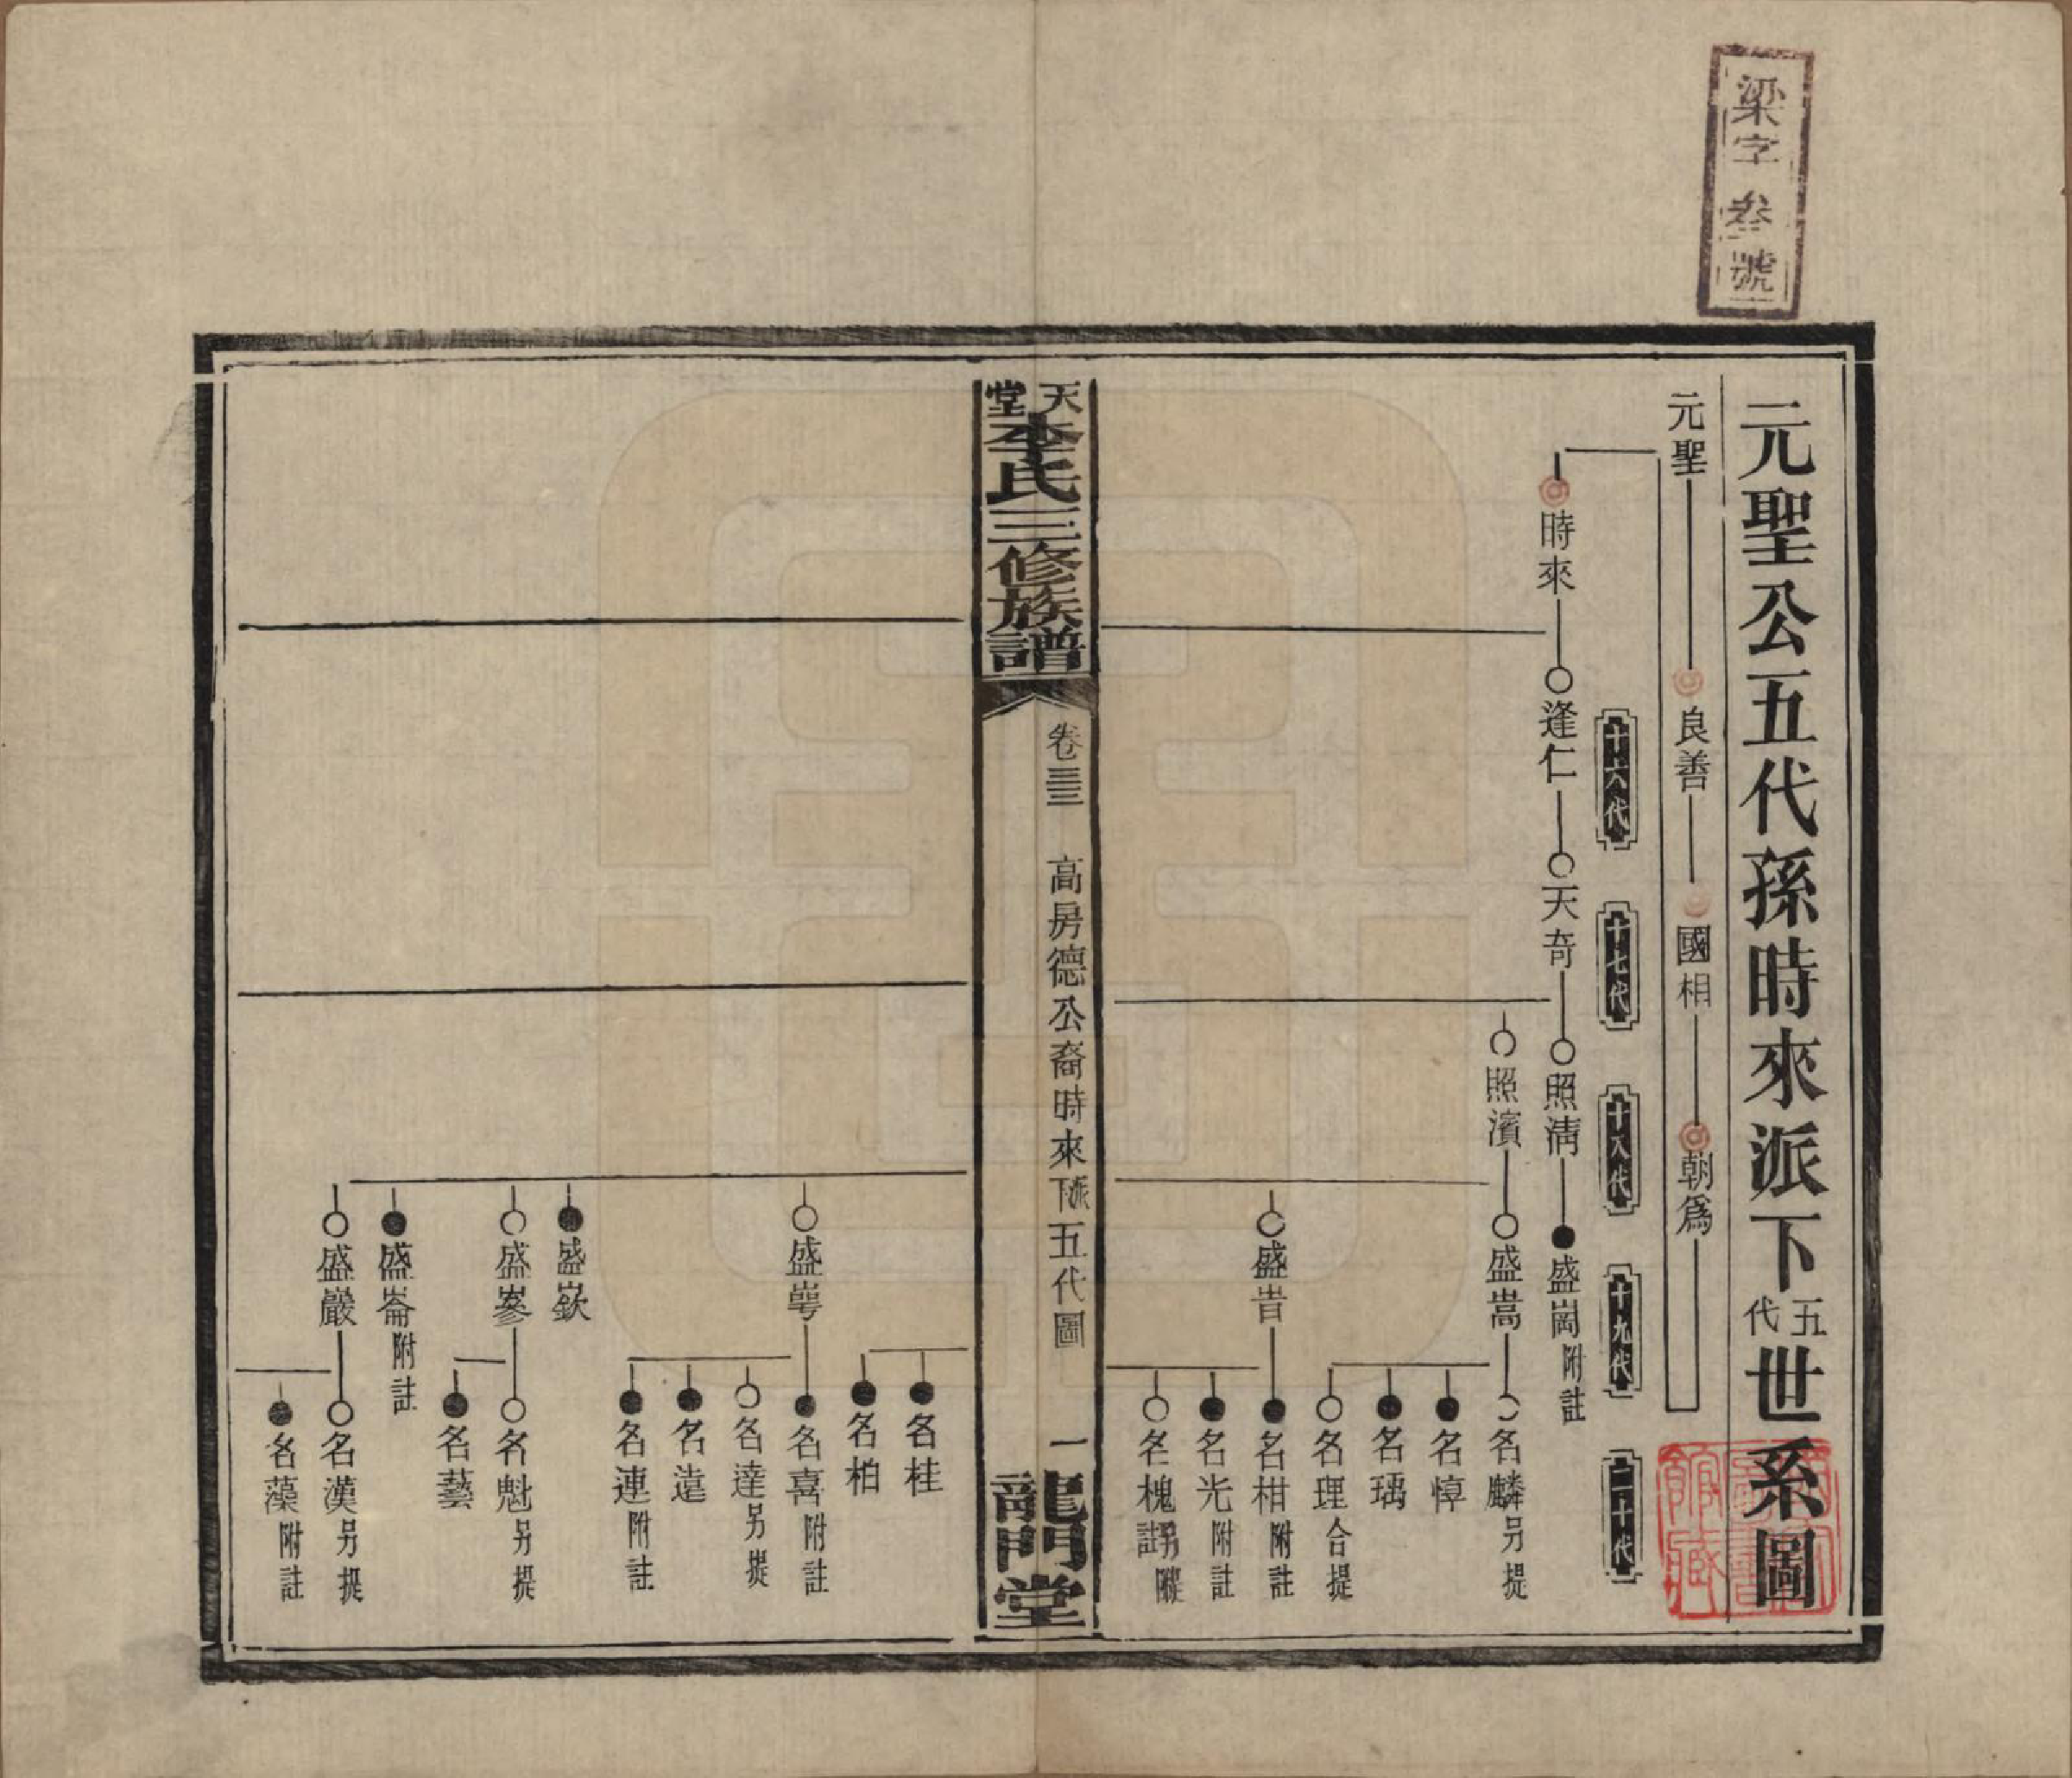 梁字叁號
元聖公五代孫時來派下五代世系圖
元聖 良善 國相 朝爲
十六代 十七代 十八代 十九代 二十代
時來 逢仁 天奇 照淸 盛崗 附註
照濱 盛嵩 名麟 另提
名悼
名瑀
名理 合提
盛旹 名柑 附註
名光 附註
名槐 另附註
天堂李氏三修族譜
卷三三 高房德公裔時來派下五代圖 一 龍門堂
名桂
名柏
盛崿 名喜 附註
名達 另提
名遠
名連 附註
盛嶔
盛嵾 名魁 另提
名藝
盛崙 附註
盛巖 名漢 另提
名藻 附註